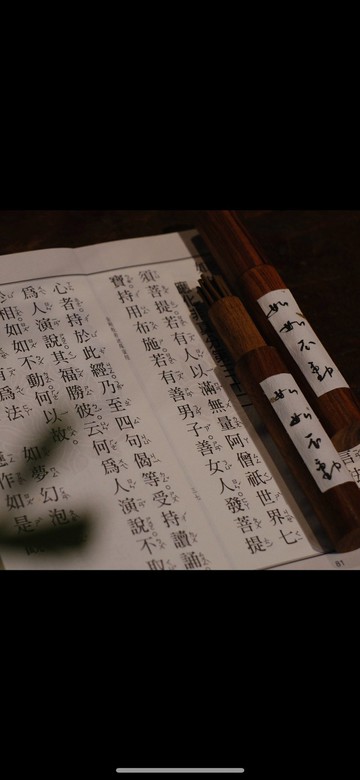 須菩提。若有人以滿無量阿僧祇世界七
寶持用布施。若有善男子。善女人。發菩提
心者持於此經。乃至四句偈等。受持讀誦
爲人演說其福勝彼。云何爲人演說。不取
相如如不動何以故。
爲法 如夢幻泡
作如是
如如不動
如如不動
81